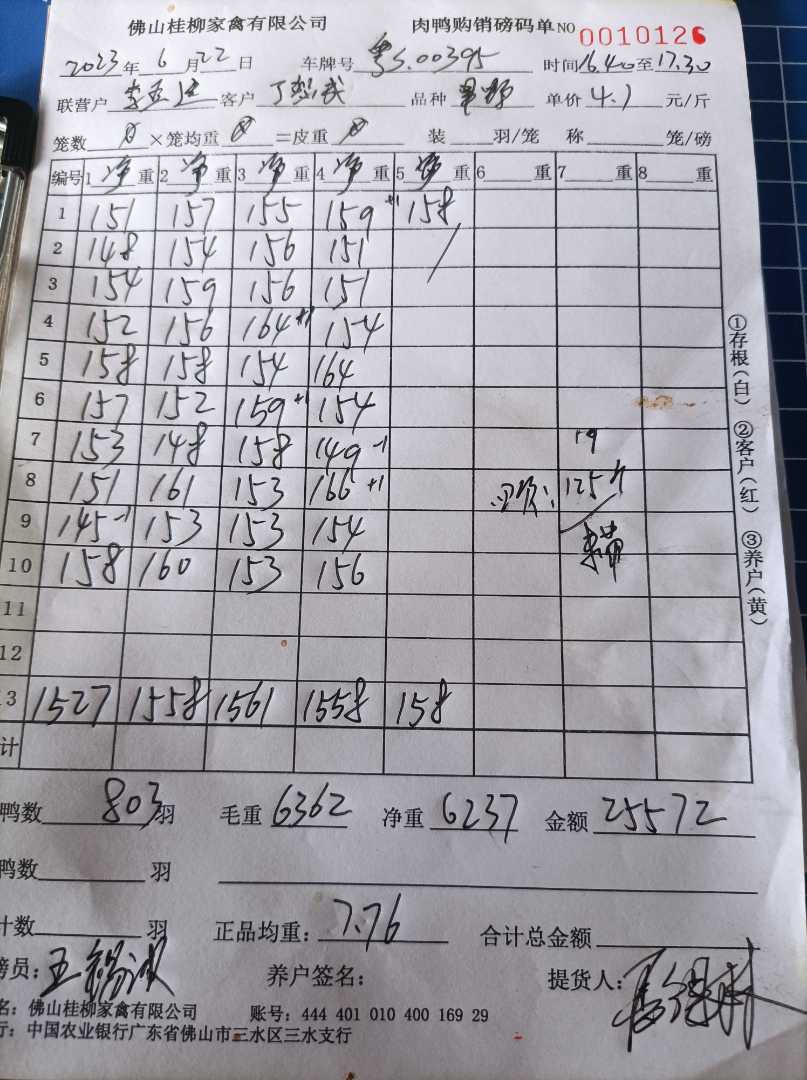 佛山桂柳家禽有限公司 肉鸭购销磅码单 NO 0010126
2023年 6月22日 车牌号 粤S.00395 时间16.40至17.30
联营户 客户 品种 单价 4.1 元/斤
笼数 0 ×笼均重 0 =皮重 0 装 羽/笼 称 笼/磅
编号 1 净 重 2 净 重 3 净 重 4 净 重 5 净 重 6 重 7 重 8 重
1 151 157 155 159 +1 158
2 148 154 156 151
3 154 159 156 151
4 152 156 164 +1 154
5 158 158 154 164
6 157 152 159 +1 154
7 153 148 158 149 -1
8 151 161 153 166 +1 125斤
9 145 -1 153 153 154
10 158 160 153 156
11
12
13 1527 1558 1561 1558 158
计
鸭数 803 羽 毛重 6362 净重 6237 金额 25572
鸭数 羽
计数 羽 正品均重: 7.76 合计总金额
磅员: 养户签名: 提货人:
名: 佛山桂柳家禽有限公司 账号: 444 401 010 400 169 29
行: 中国农业银行广东省佛山市三水区三水支行
①存根(白) ②客户(红) ③养户(黄)